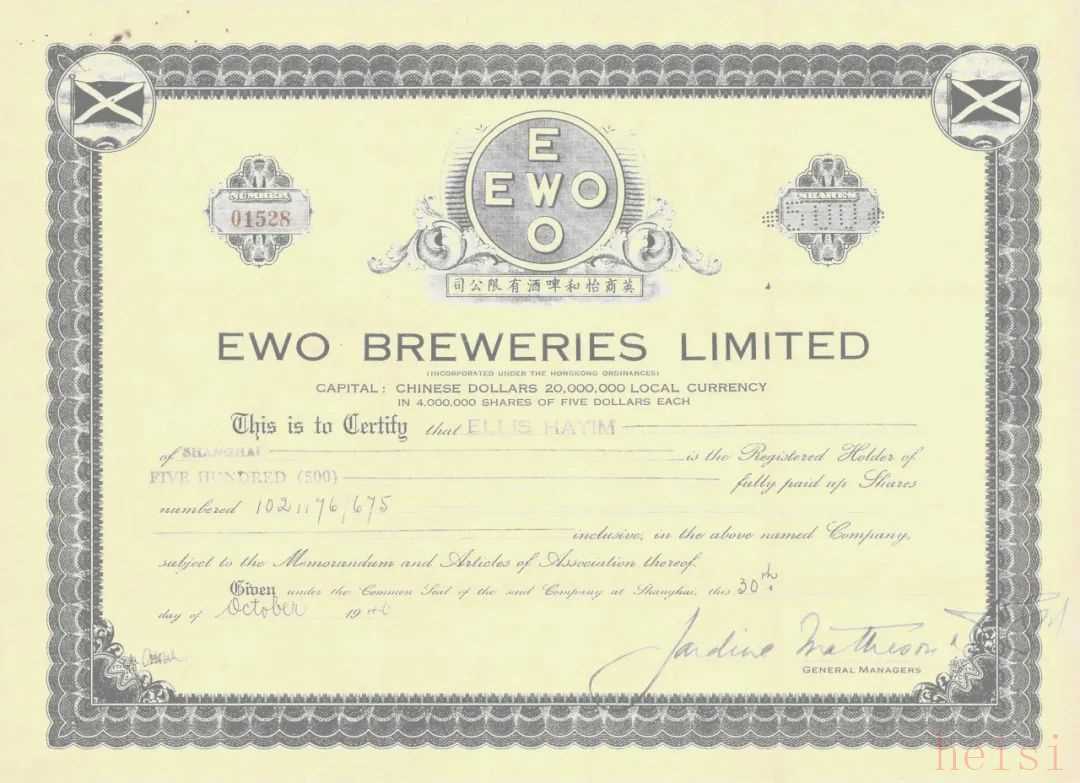 E
EWO
O
NUMBER
01528
SHARES
500
英商怡和啤酒有限公司
EWO BREWERIES LIMITED
(INCORPORATED UNDER THE HONGKONG ORDINANCES)
CAPITAL: CHINESE DOLLARS 20,000,000 LOCAL CURRENCY
IN 4,000,000 SHARES OF FIVE DOLLARS EACH
This is to Certify that ELLIS HAYIM
of SHANGHAI is the Registered Holder of
FIVE HUNDRED (500) fully paid up Shares
numbered 1021176/675
inclusive, in the above named Company,
subject to the Memorandum and Articles of Association thereof.
Given under the Common Seal of the said Company at Shanghai, this 30th
day of October 19
Jardine Matheson &
GENERAL MANAGERS
heisi